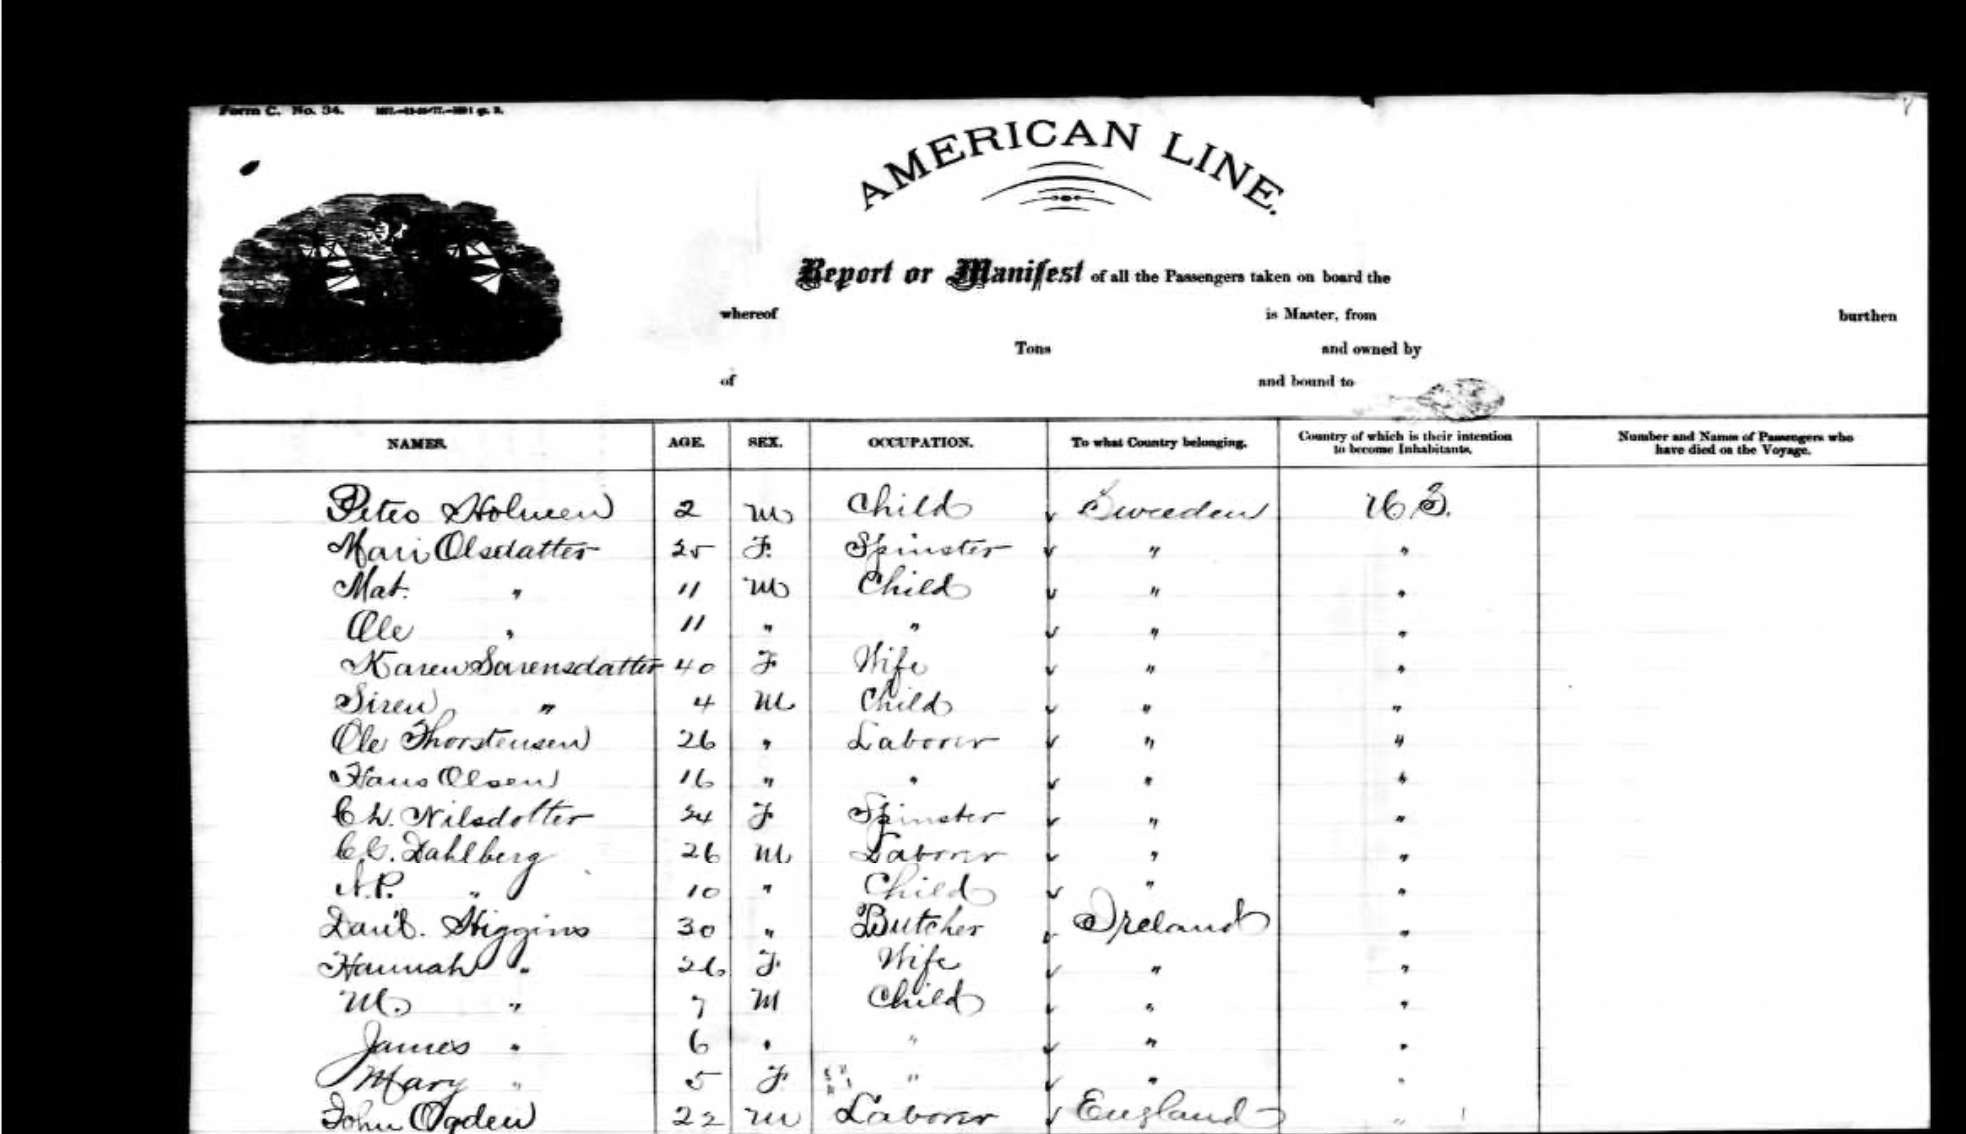 Form C. No. 34.
AMERICAN LINE.
Report or Manifest of all the Passengers taken on board the
whereof is Master, from burthen
Tons and owned by
of and bound to
NAMES. AGE. SEX. OCCUPATION. To what Country belonging. Country of which is their intention to become Inhabitants. Number and Names of Passengers who have died on the Voyage.
Holmeen 2 M Child Sweden U.S.
Mari Olsdatter 25 F. Spinster " "
Mat. " 11 M Child " "
Ole " 11 " " " "
Karen Sorensdatter 40 F Wife " "
Siren " 4 M Child " "
Ole Thorstensen 26 " Laborer " "
Hans Olsen 16 " " " "
Ch. Nilsdotter 24 F Spinster " "
C.C. Dahlberg 26 M Laborer " "
N.P. " 10 " Child " "
Danl. Higgins 30 " Butcher Ireland "
Hannah " 26 F Wife " "
M. " 7 M Child " "
James " 6 " " " "
Mary " 5 F " " "
John Ogden 22 M Laborer England "